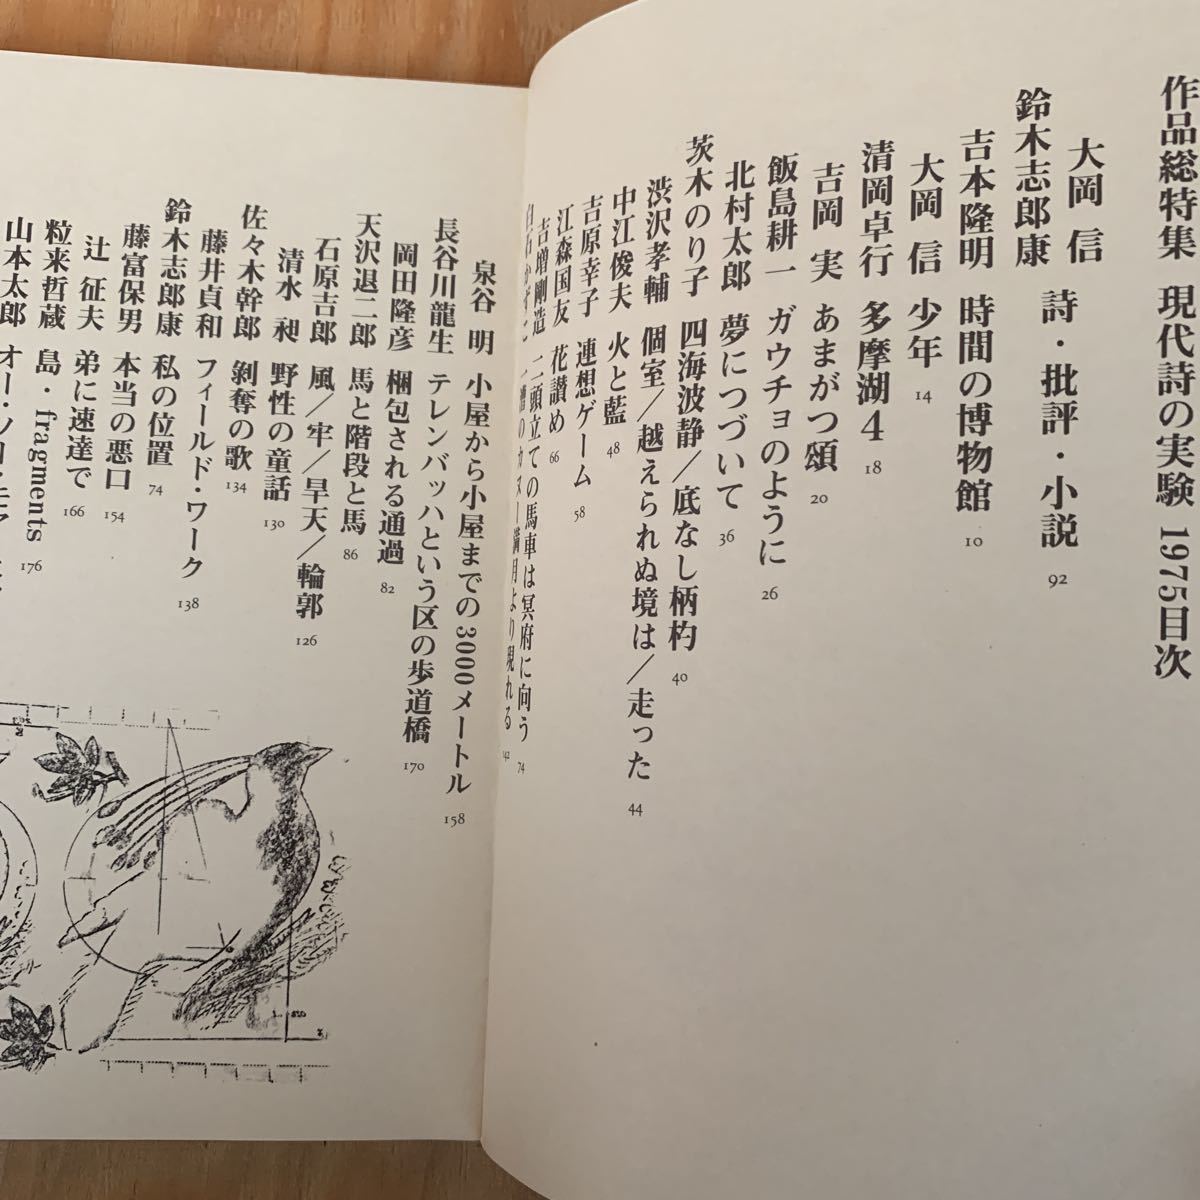 作品総特集 現代詩の実験 1975目次
大岡 信
鈴木志郎康 詩・批評・小説 92
吉本隆明 時間の博物館 10
大岡 信 少年 14
清岡卓行 多摩湖4 18
吉岡 実 あまがつ頌 20
飯島耕一 ガウチョのように 26
北村太郎 夢につづいて 36
茨木のり子 四海波静/底なし柄杓 40
渋沢孝輔 個室/越えられぬ境は/走った 44
中江俊夫 火と藍 48
吉原幸子 連想ゲーム 58
江森国友 花讃め 66
吉増剛造 二頭立ての馬車は冥府に向う 74
白石かずこ 一艘のカヌー 満月より現れる 142
泉谷 明 小屋から小屋までの3000メートル 158
長谷川龍生 テレンバッハという区の歩道橋 170
岡田隆彦 梱包される通過 82
天沢退二郎 馬と階段と馬 86
石原吉郎 風/牢/旱天/輪郭 126
清水 昶 野性の童話 130
佐々木幹郎 剝奪の歌 134
藤井貞和 フィールド・ワーク 138
鈴木志郎康 私の位置 74
藤富保男 本当の悪口 154
辻 征夫 弟に速達で 166
粒来哲蔵 島・fragments 176
山本太郎 オー・ソロ・